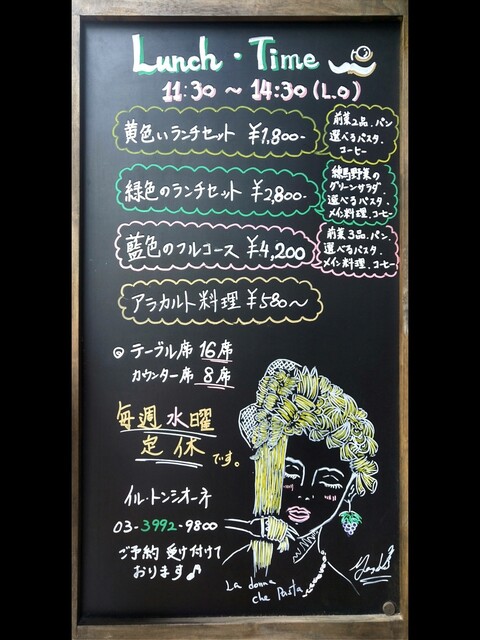 Lunch・Time
11:30 ～ 14:30 (L.O)
黄色いランチセット ¥1,800-
前菜2品.パン
選べるパスタ.
コーヒー
緑色のランチセット ¥2,800-
練馬野菜の
グリーンサラダ
選べるパスタ.
メイン料理.コーヒー
藍色のフルコース ¥4,200
前菜3品.パン.
選べるパスタ.
メイン料理.コーヒー
アラカルト料理 ¥580～
◎ テーブル席 16席
カウンター席 8席
毎週水曜
定休です。
イル・トンシオーネ
03-3992-9800
ご予約 受け付けて
おります♪
La donna
che Pasta